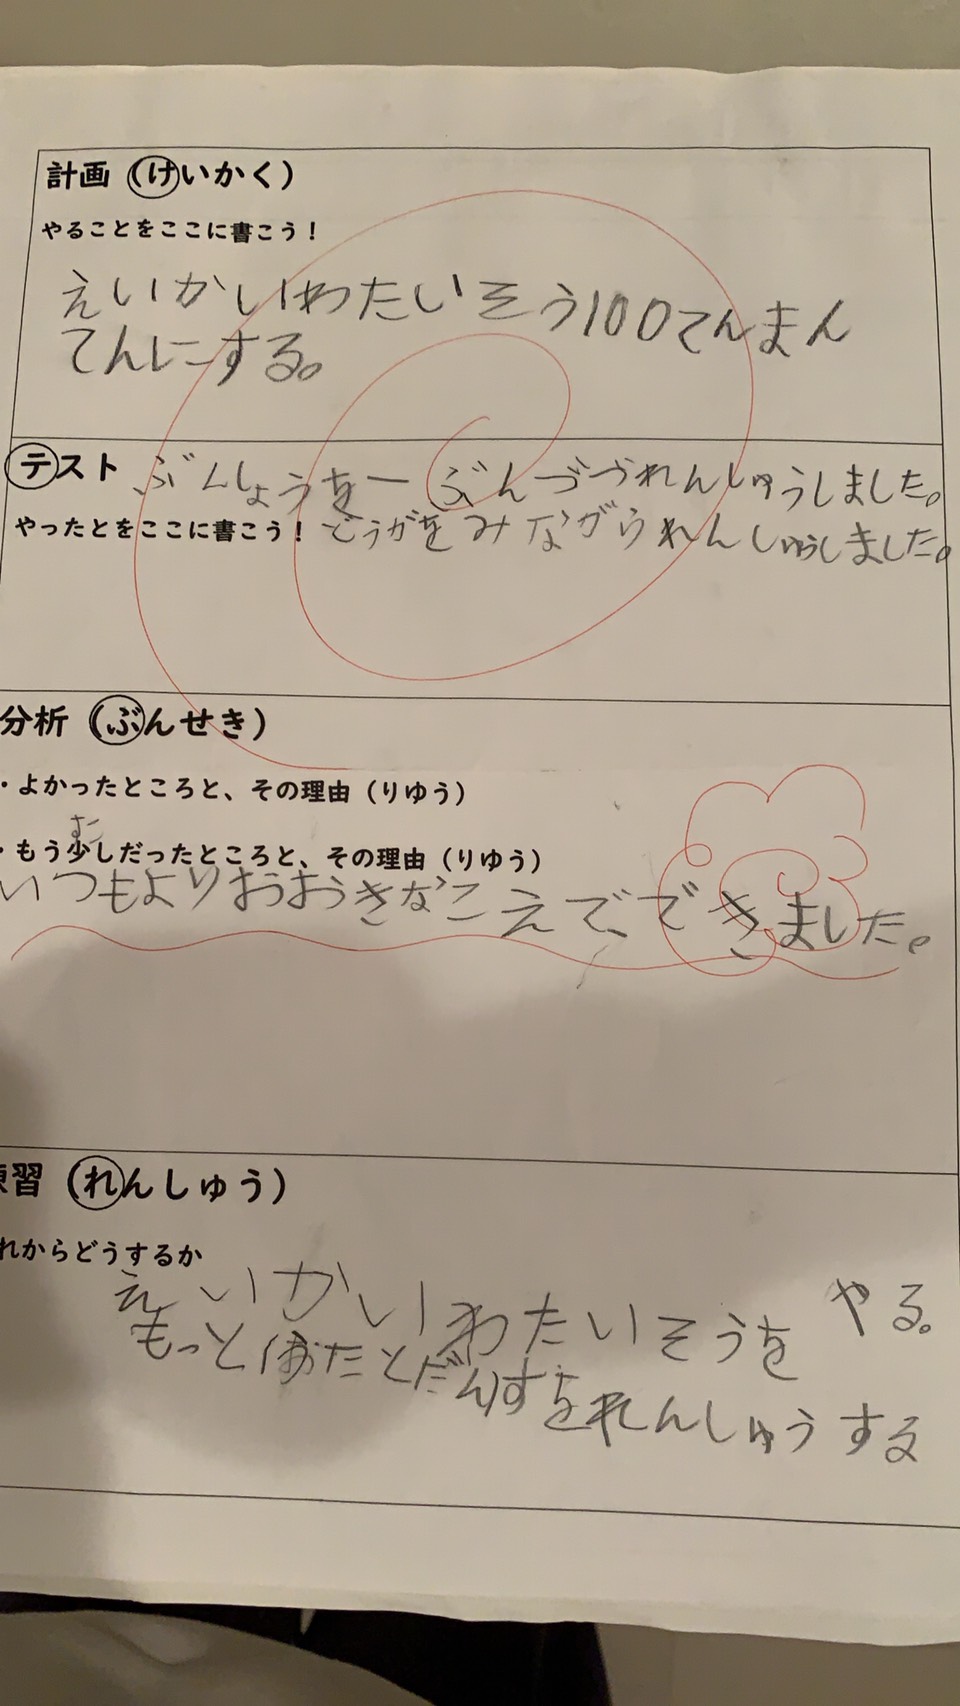 計画（けいかく）
やることをここに書こう！
えいかいわたいそう100てんまん
てんにする。
テスト ぶんしょうを一ぶんづづれんしゅうしました。
やったとをここに書こう！ どうがをみながられんしゅうしました。
分析（ぶんせき）
・よかったところと、その理由（りゆう）
すこ
・もう少しだったところと、その理由（りゆう）
いつもよりおうおうきなこえでできました。
練習（れんしゅう）
れからどうするか
えいかいわたいそうを やる。
もっと うたとだんすをれんしゅうする